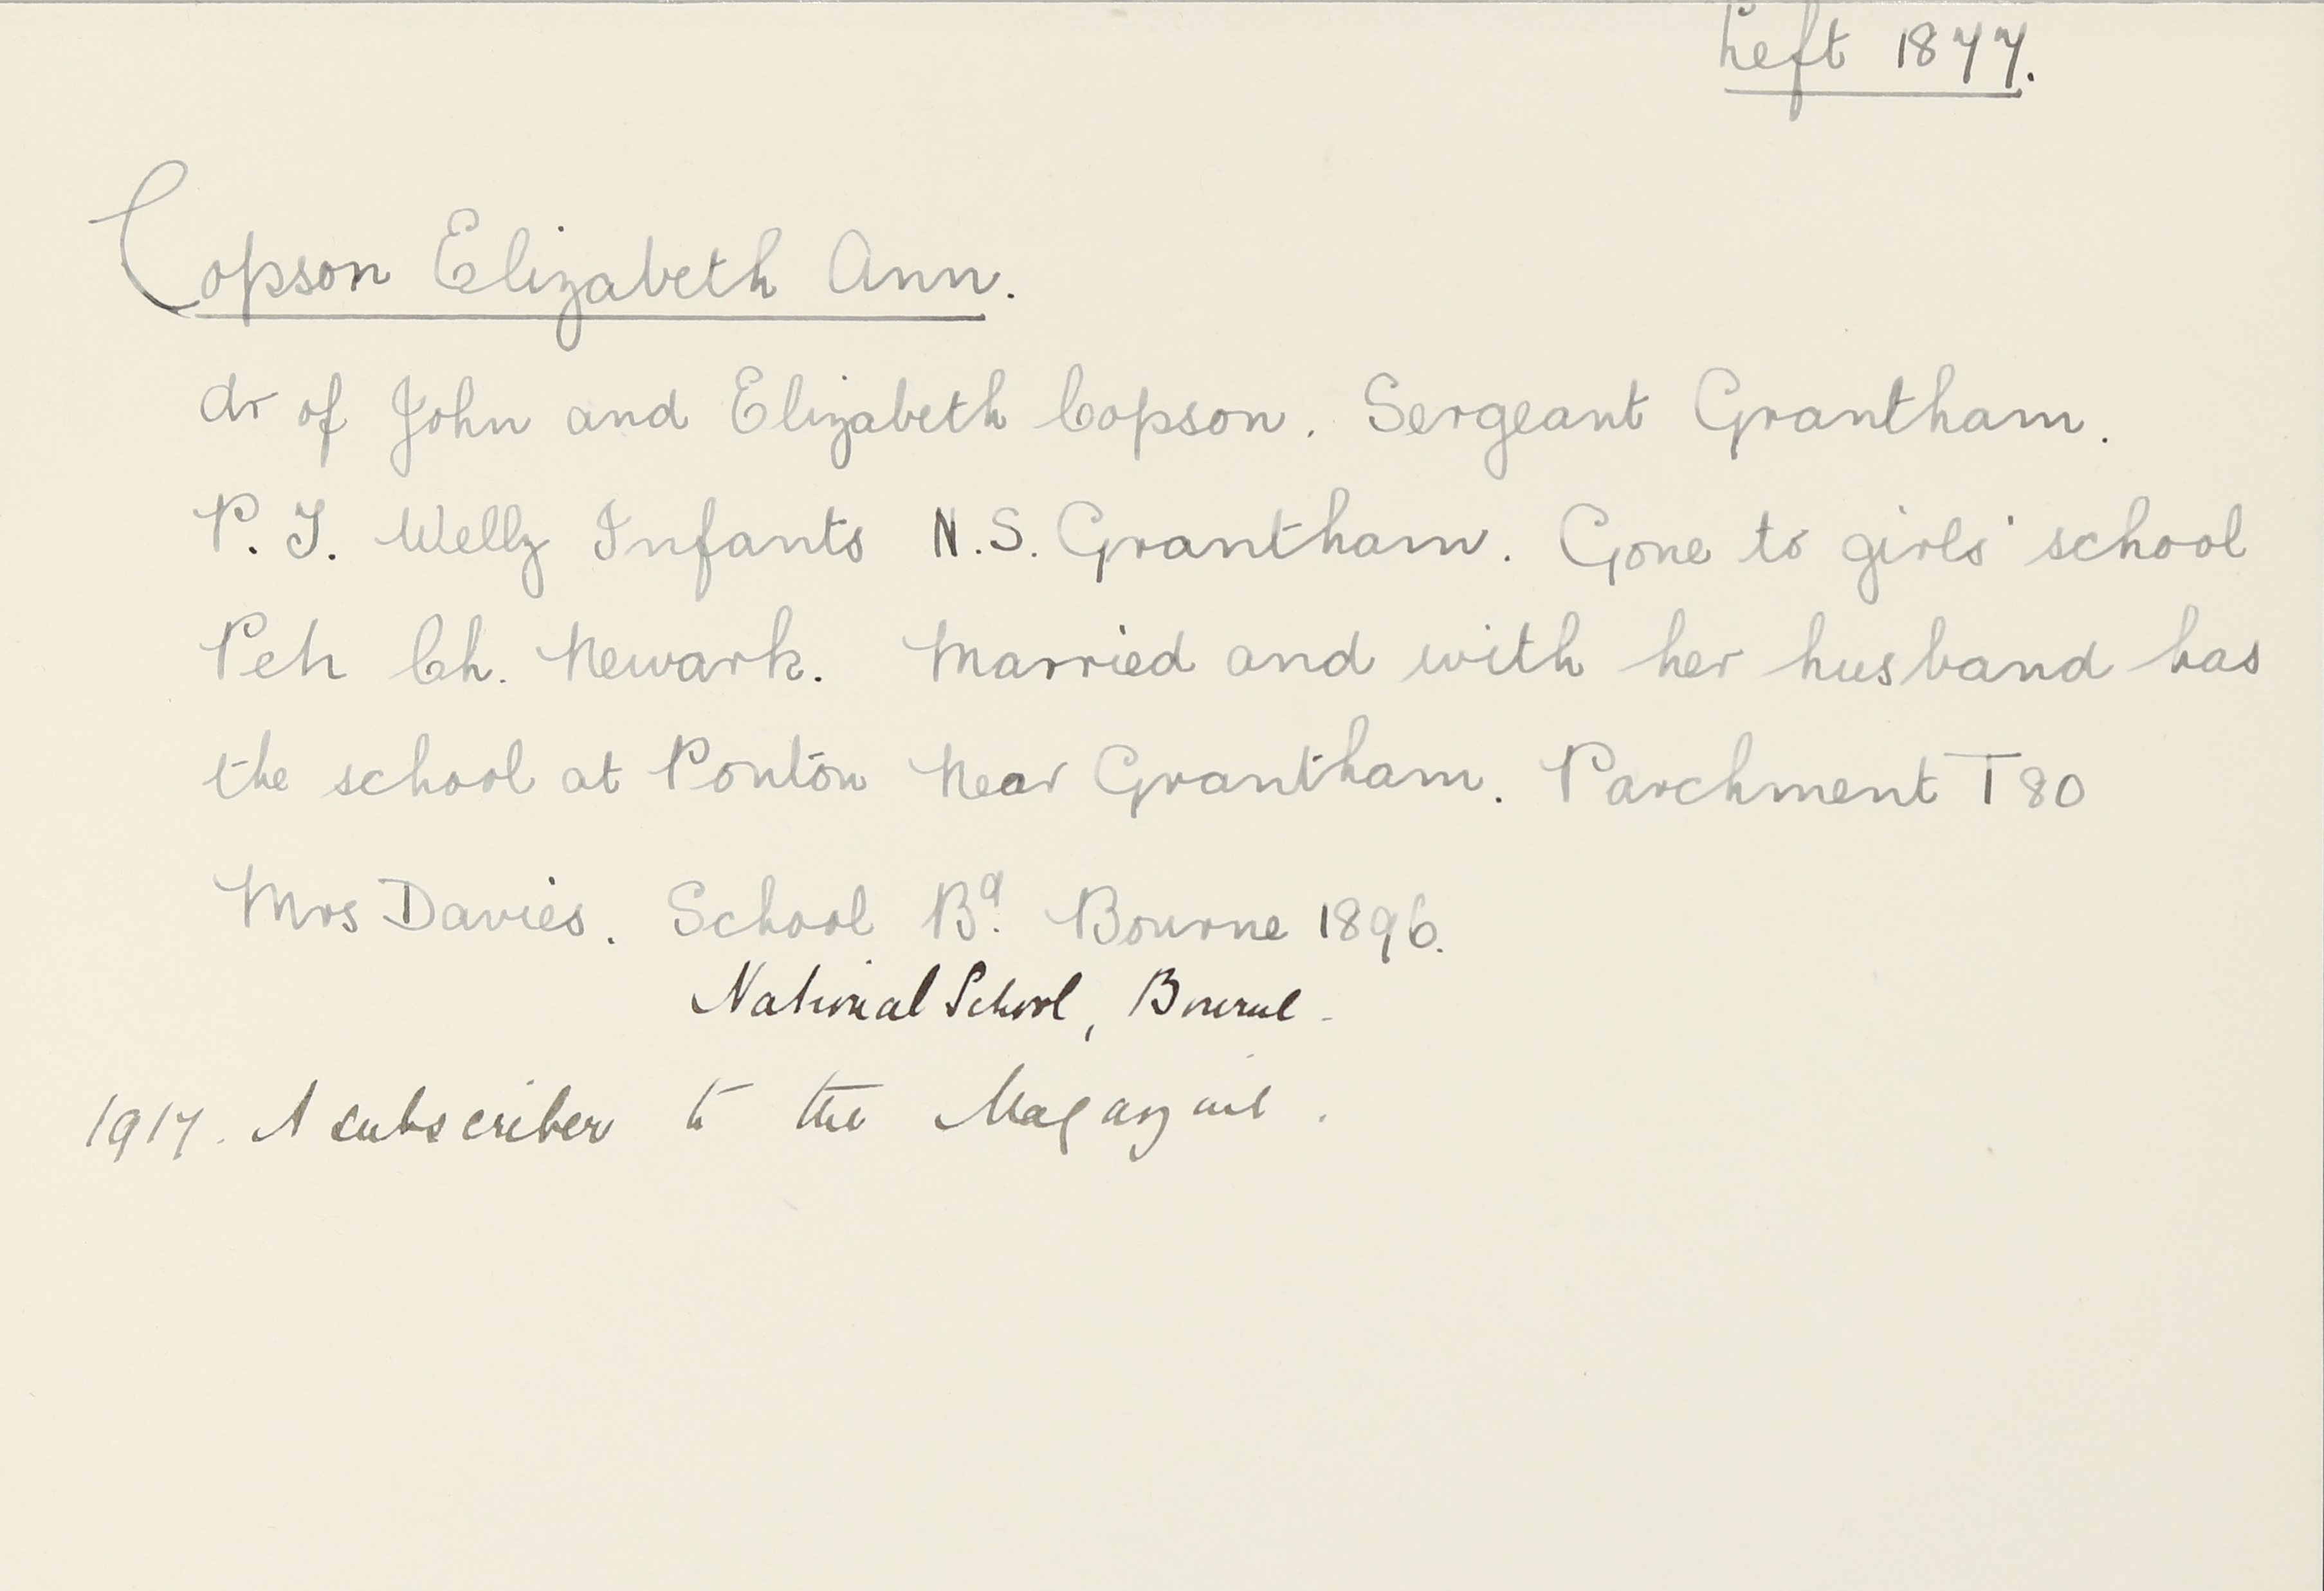 Left 1877.
Copson Elizabeth Ann.
dr of John and Elizabeth Copson. Sergeant Grantham.
P. T. Infants N.S. Grantham. Gone to girls' school
Ch. Newark. Married and with her husband has
the school at Ponton Near Grantham. Parchment T 80
Mrs Davies. School Bd. Bourne 1896.
National School, Bourne -
1917. A subscriber to the Magazine.